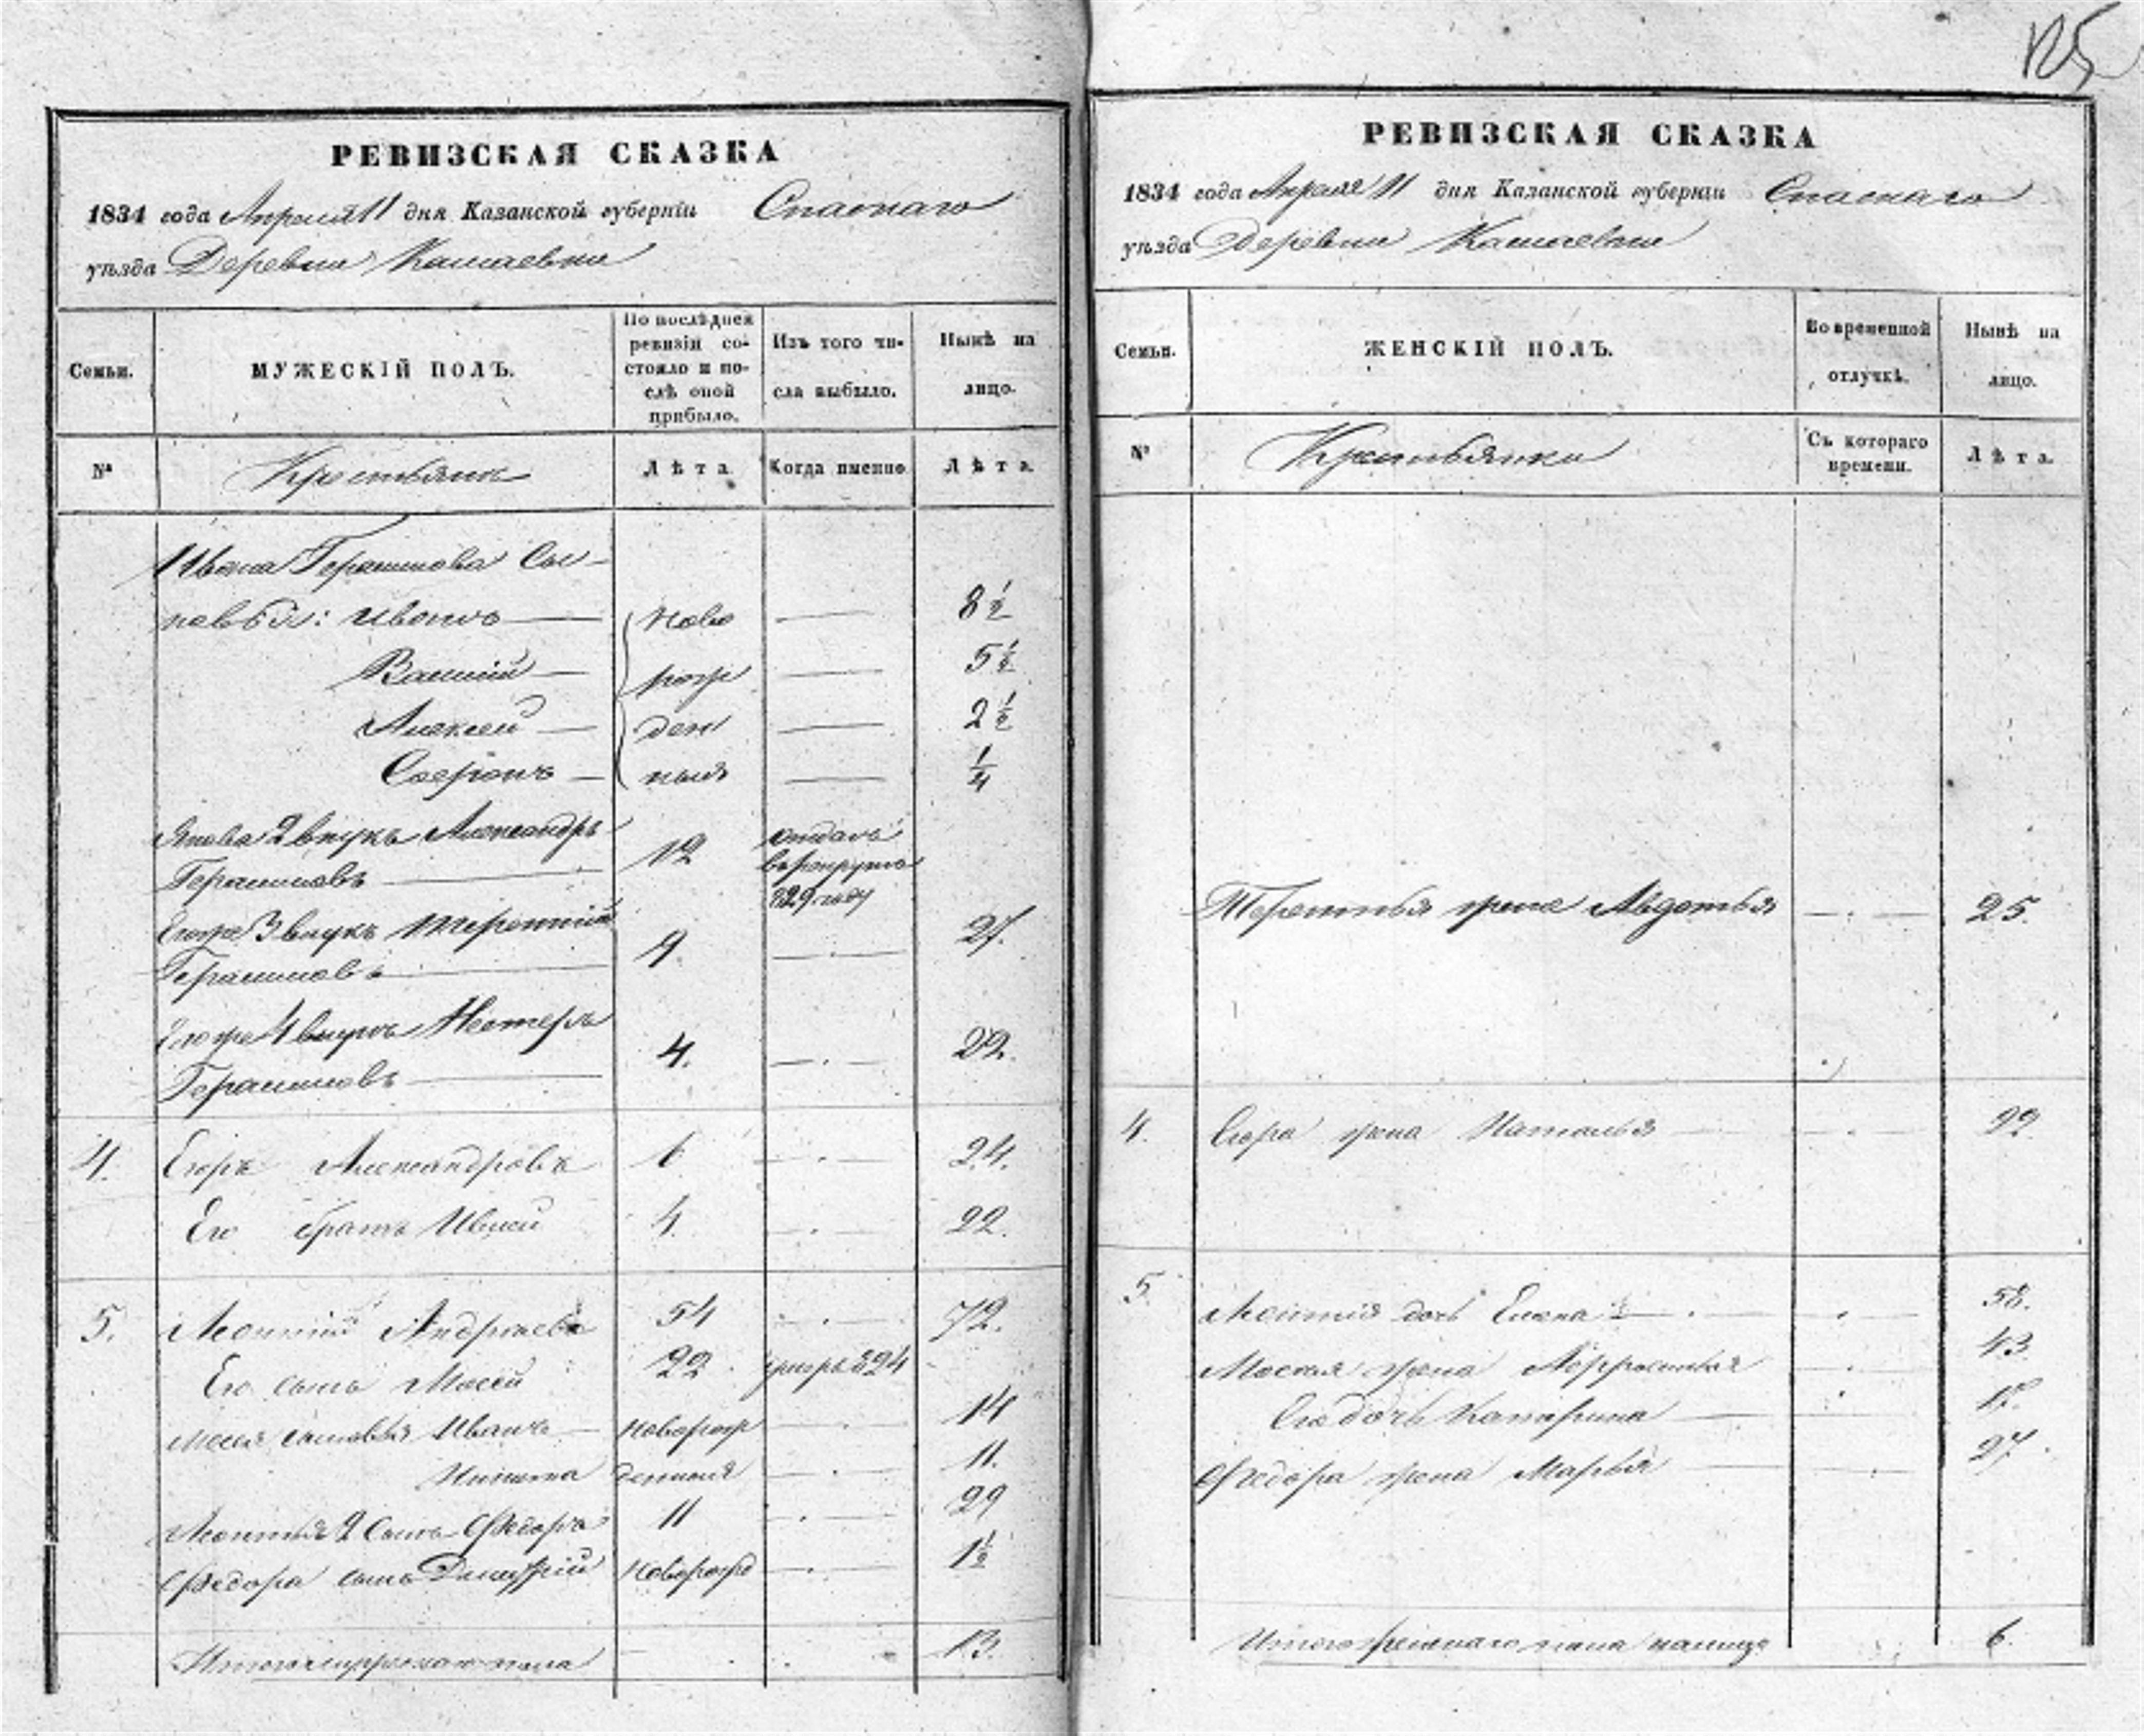 125
РЕВИЗСКАЯ СКАЗКА
1834 года Апреля 11 дня Казанской губерніи Спаскаго
уѣзда Деревни
Семьи.
МУЖЕСКІЙ ПОЛЪ.
По послѣдней
ревизіи со-
стояло и по-
слѣ оной
прибыло.
Изъ того чи-
сла выбыло.
Нынѣ на
лицо.
№
Крестьяне
Лѣта
Когда именно
Лѣта.
Ивана Герасимова сы-
новья: Иванъ ново 8 1/2
Василій рож 5 1/2
Алексей ден 2 1/2
ныя 1/4
2 внукъ Александръ
Герасимовъ 12 отданъ
в рекруты
829 году
Егоже 3 внукъ Терентій 9. 27.
Герасимовъ
Егоже 4 внукъ Нестеръ
Герасимовъ 4. 22.
4. Егоръ Александровъ 6 24.
Его братъ 4. 22.
5. Леонтій Андреевъ 54 72.
Его сынъ Мосей 22 824
Мосея сыновья Иванъ новорож 14
Никита денныя 11.
Леонтья 2 сынъ Федоръ 11 29
Федора сынъ Дмитрій новорожд 1 1/2
Итого мужескаго пола 13.
РЕВИЗСКАЯ СКАЗКА
1834 года Апреля 11 дня Казанской губерніи Спаскаго
уѣзда Деревни
Семьи.
ЖЕНСКІЙ ПОЛЪ.
Во временной
отлучкѣ.
Нынѣ на
лицо.
№
Крестьянки
Съ котораго
времени.
Лѣта.
Терентья жена Авдотья 25.
4. Егора жена Наталья 22
5. Леонтія дочь Елена 58.
Мосея жена 43
Его дочь Катерина
Федора жена Марья 27.
Итого женскаго пола налицо 6.